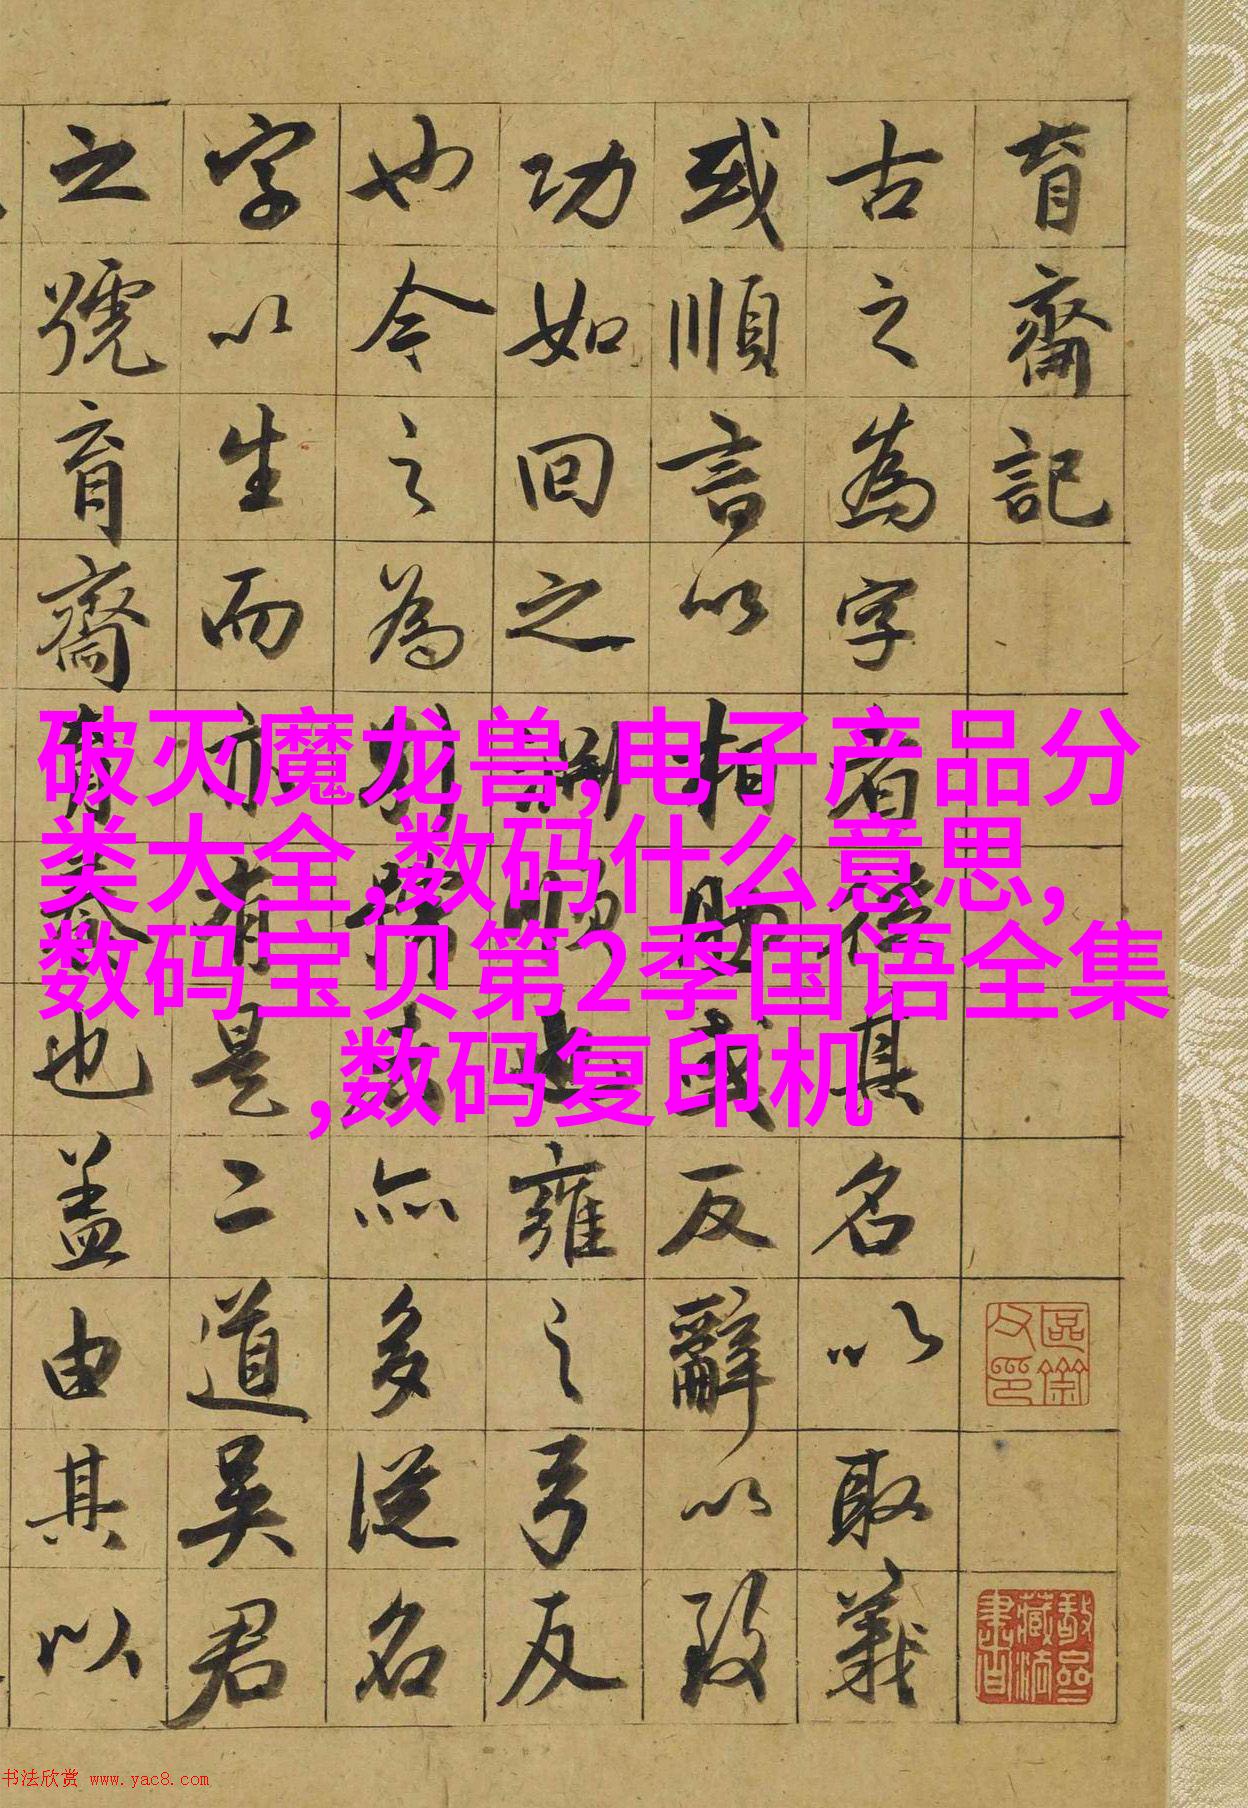 育齋記
古之為字者其名以取義
或順言以相配或反辭以致
功如回之雍之弓反
也今之為別號者亦多從名
字以生而亦有是二道吳君
之號育齋有也盖由其以
破灭魔龙兽,电子产品分
类大全,数码什么意思,
数码宝贝第2季国语全集
,数码复印机
书法欣赏 www.yac8.com